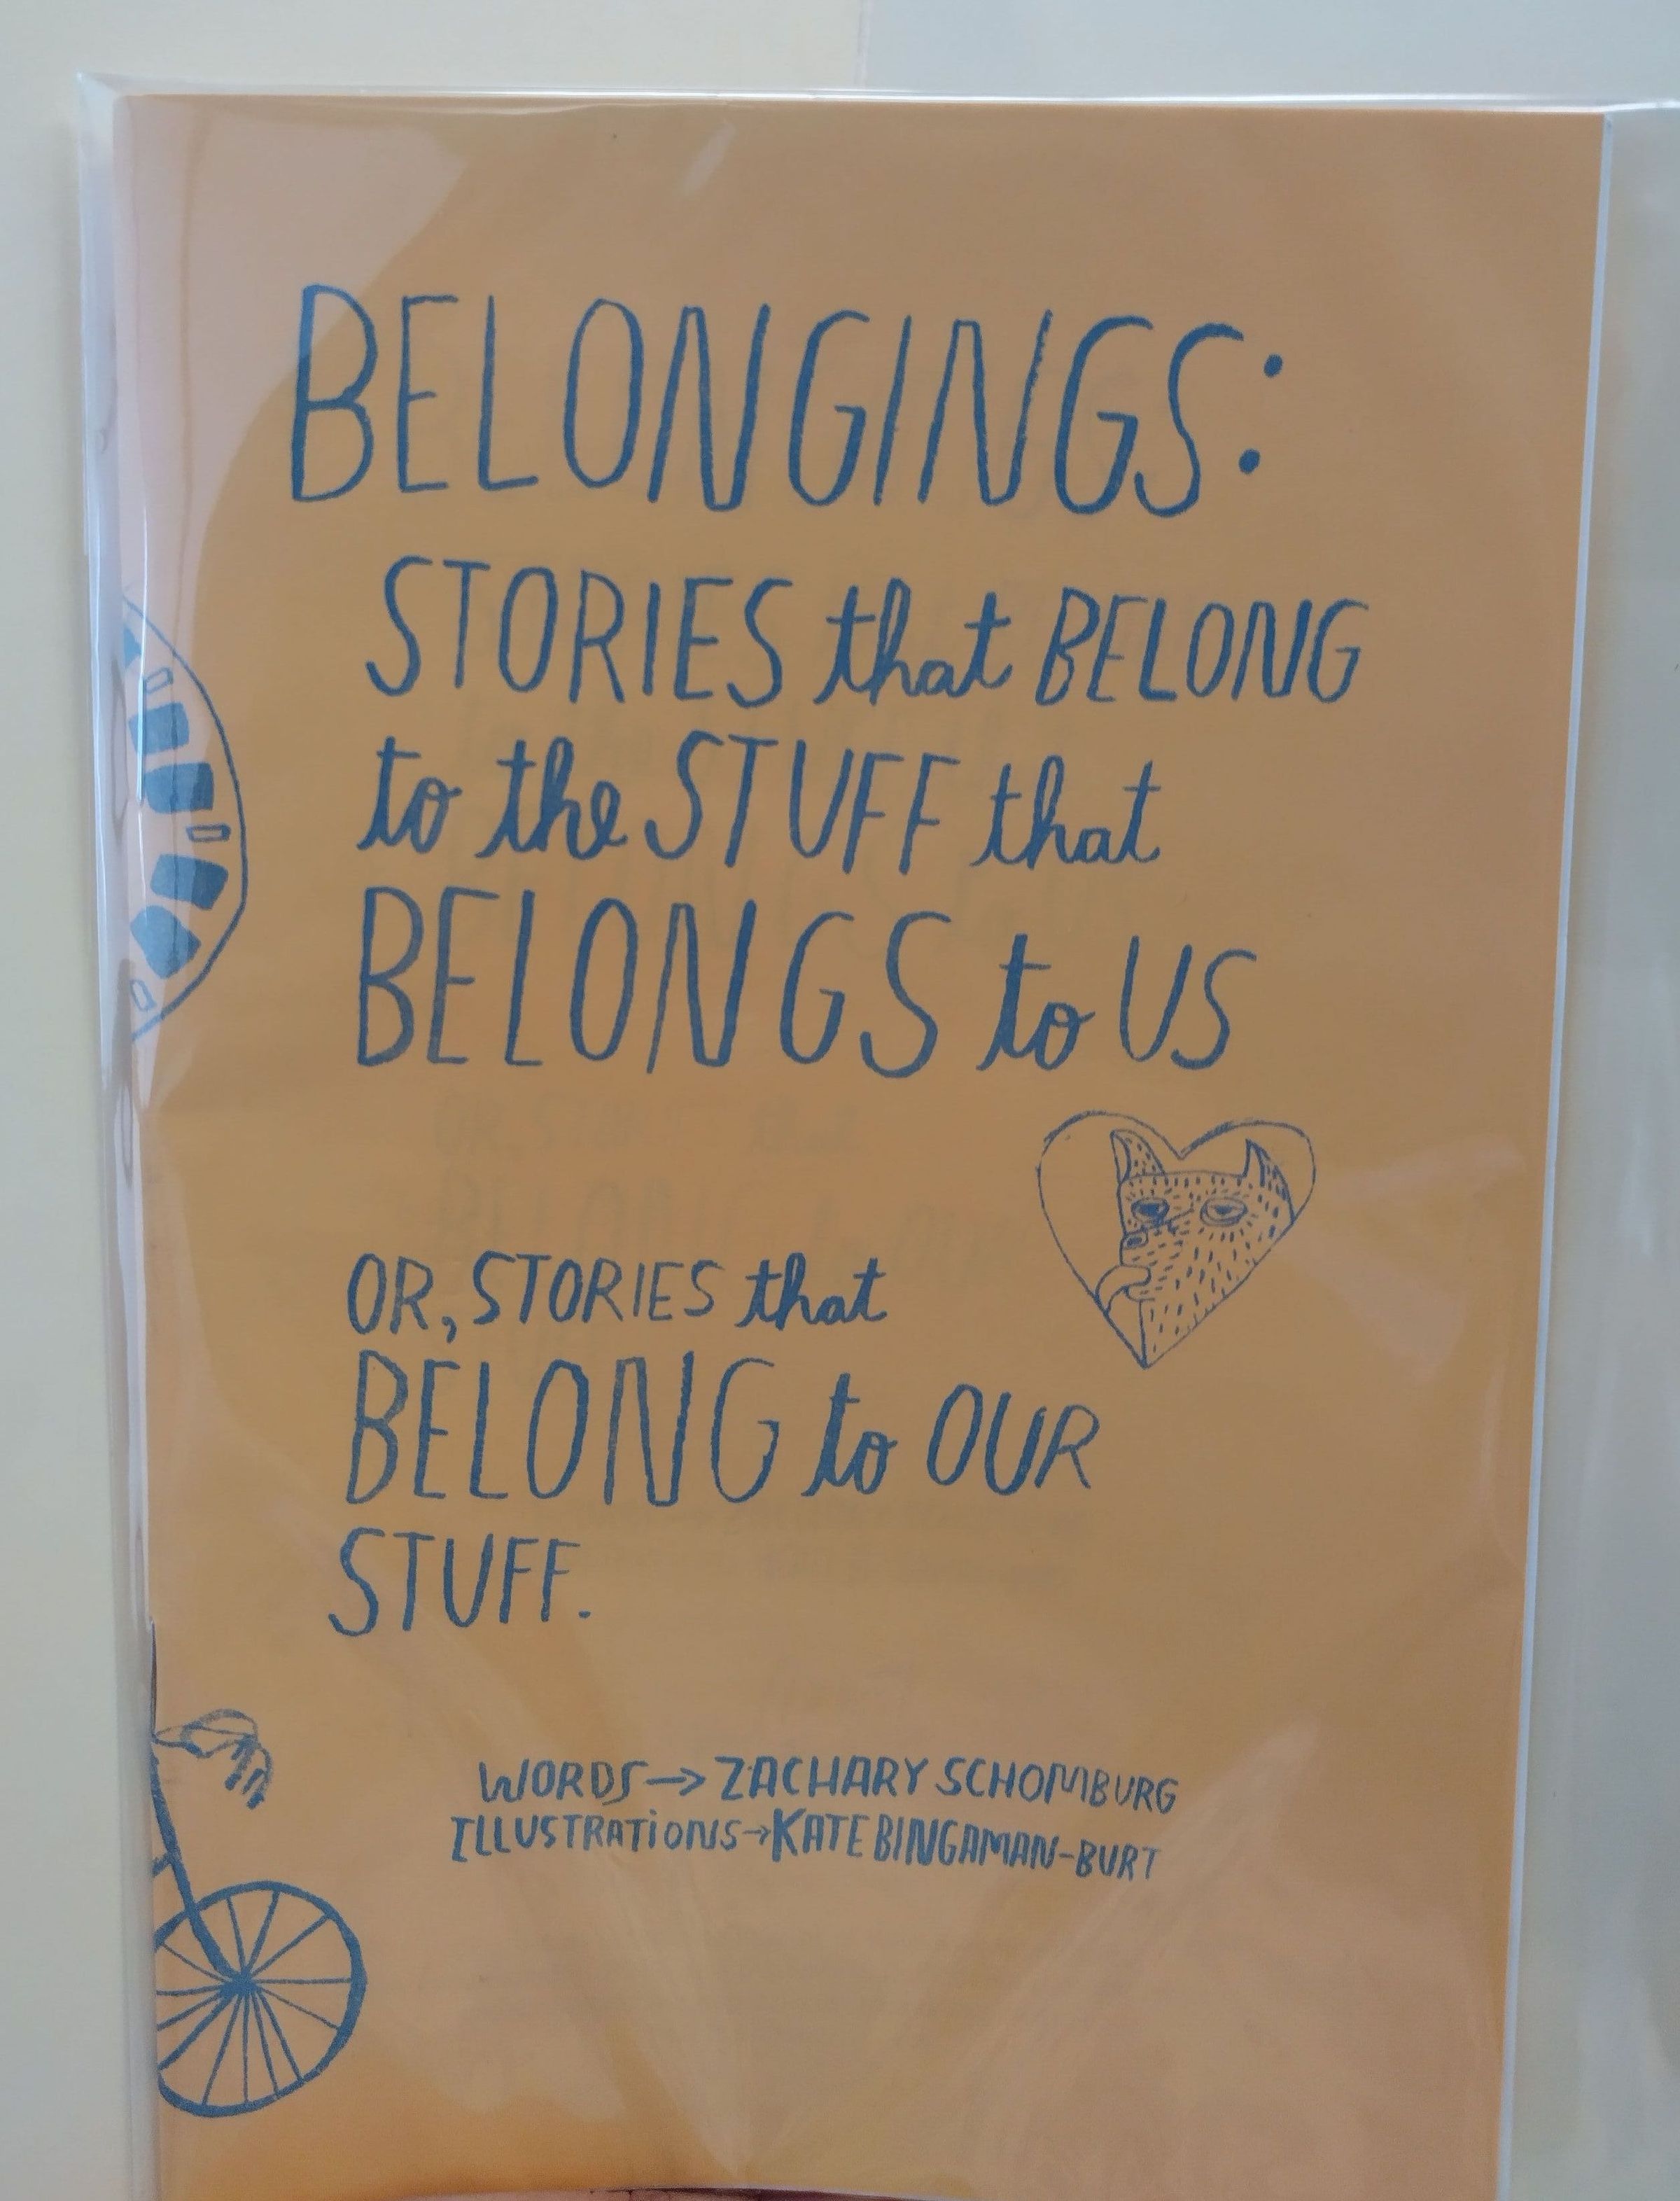 BELONGINGS:
STORIES that BELONG
to the STUFF that
BELONGS to US
OR, STORIES that
BELONG to OUR
STUFF.
WORDS → ZACHARY SCHOMBURG
ILLUSTRATiONS → KATE BINGAMAN-BURT